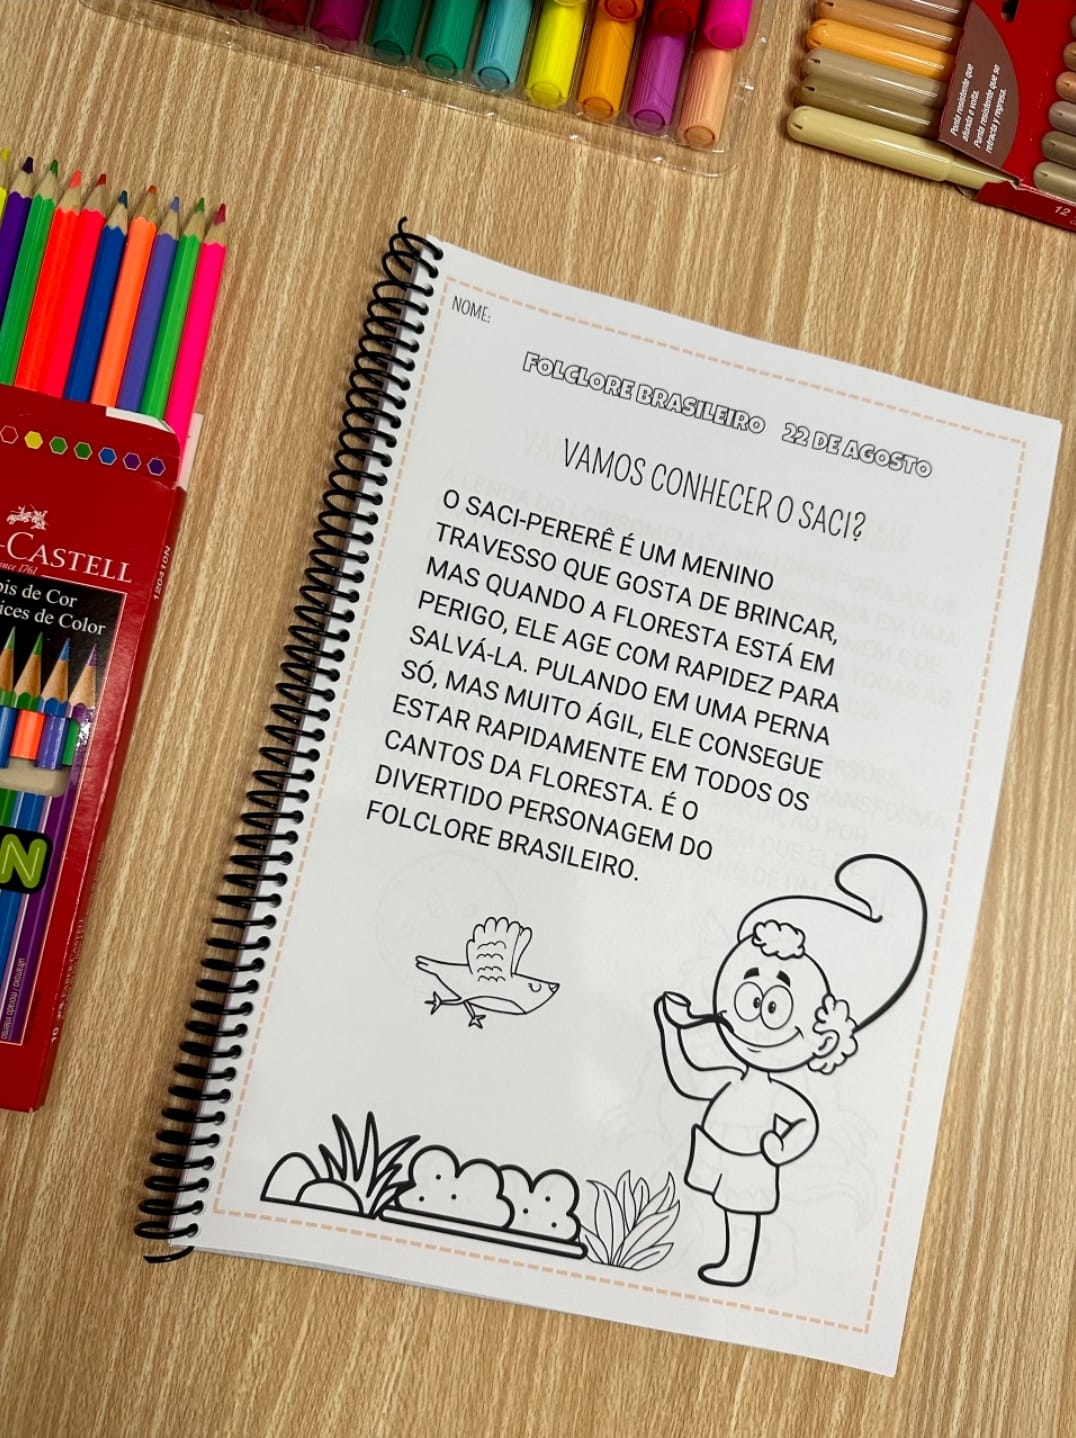 Ponta resistente que
afunda e volta.
Punta resistente que se
retracta y regresa.
12
NOME:
FOLCLORE BRASILEIRO 22 DE AGOSTO
VAMOS CONHECER O SACI?
O SACI-PERERÊ É UM MENINO
TRAVESSO QUE GOSTA DE BRINCAR,
MAS QUANDO A FLORESTA ESTÁ EM
PERIGO, ELE AGE COM RAPIDEZ PARA
SALVÁ-LA. PULANDO EM UMA PERNA
SÓ, MAS MUITO ÁGIL, ELE CONSEGUE
ESTAR RAPIDAMENTE EM TODOS OS
CANTOS DA FLORESTA. É O
DIVERTIDO PERSONAGEM DO
FOLCLORE BRASILEIRO.
-CASTELL
since 1761
pis de Cor
ices de Color
120410N
N